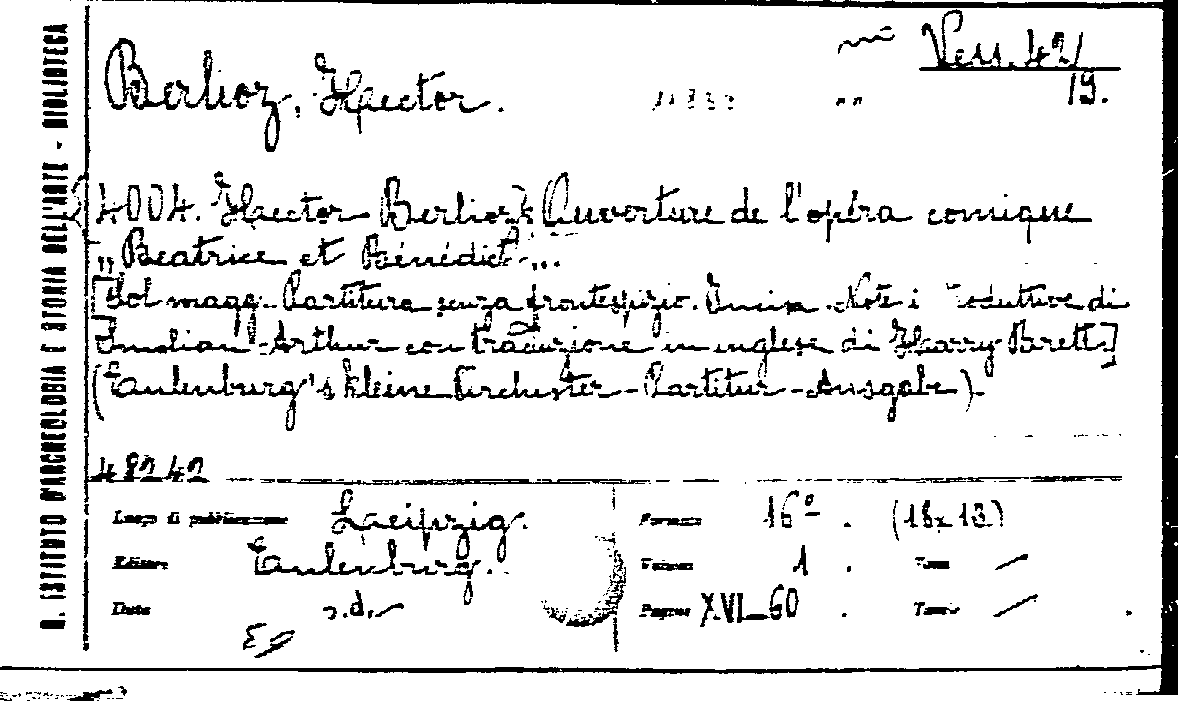 R. ISTITUTO D'ARCHEOLOGIA E STORIA DELL'ARTE - BIBLIOTECA
Vess. 42/
19.
Berlioz, Hector.
4004. Hector Berlioz: Ouverture de l'opéra comique
„Beatrice et Bénédict„.
[Sol magg. Partitura senza frontespizio. Incisa. Note introduttive di
Arthur con traduzione in inglese di Harry Brett]
(Eulenburg's kleine Orchester-Partitur-Ausgabe).
48242
Luogo di pubblicazione Leipzig.
Editore Eulenburg.
Data s.d.
Formato 16º. (18x13)
Volumi 1. Tomi —
Pagine XVI-60. Tavole —